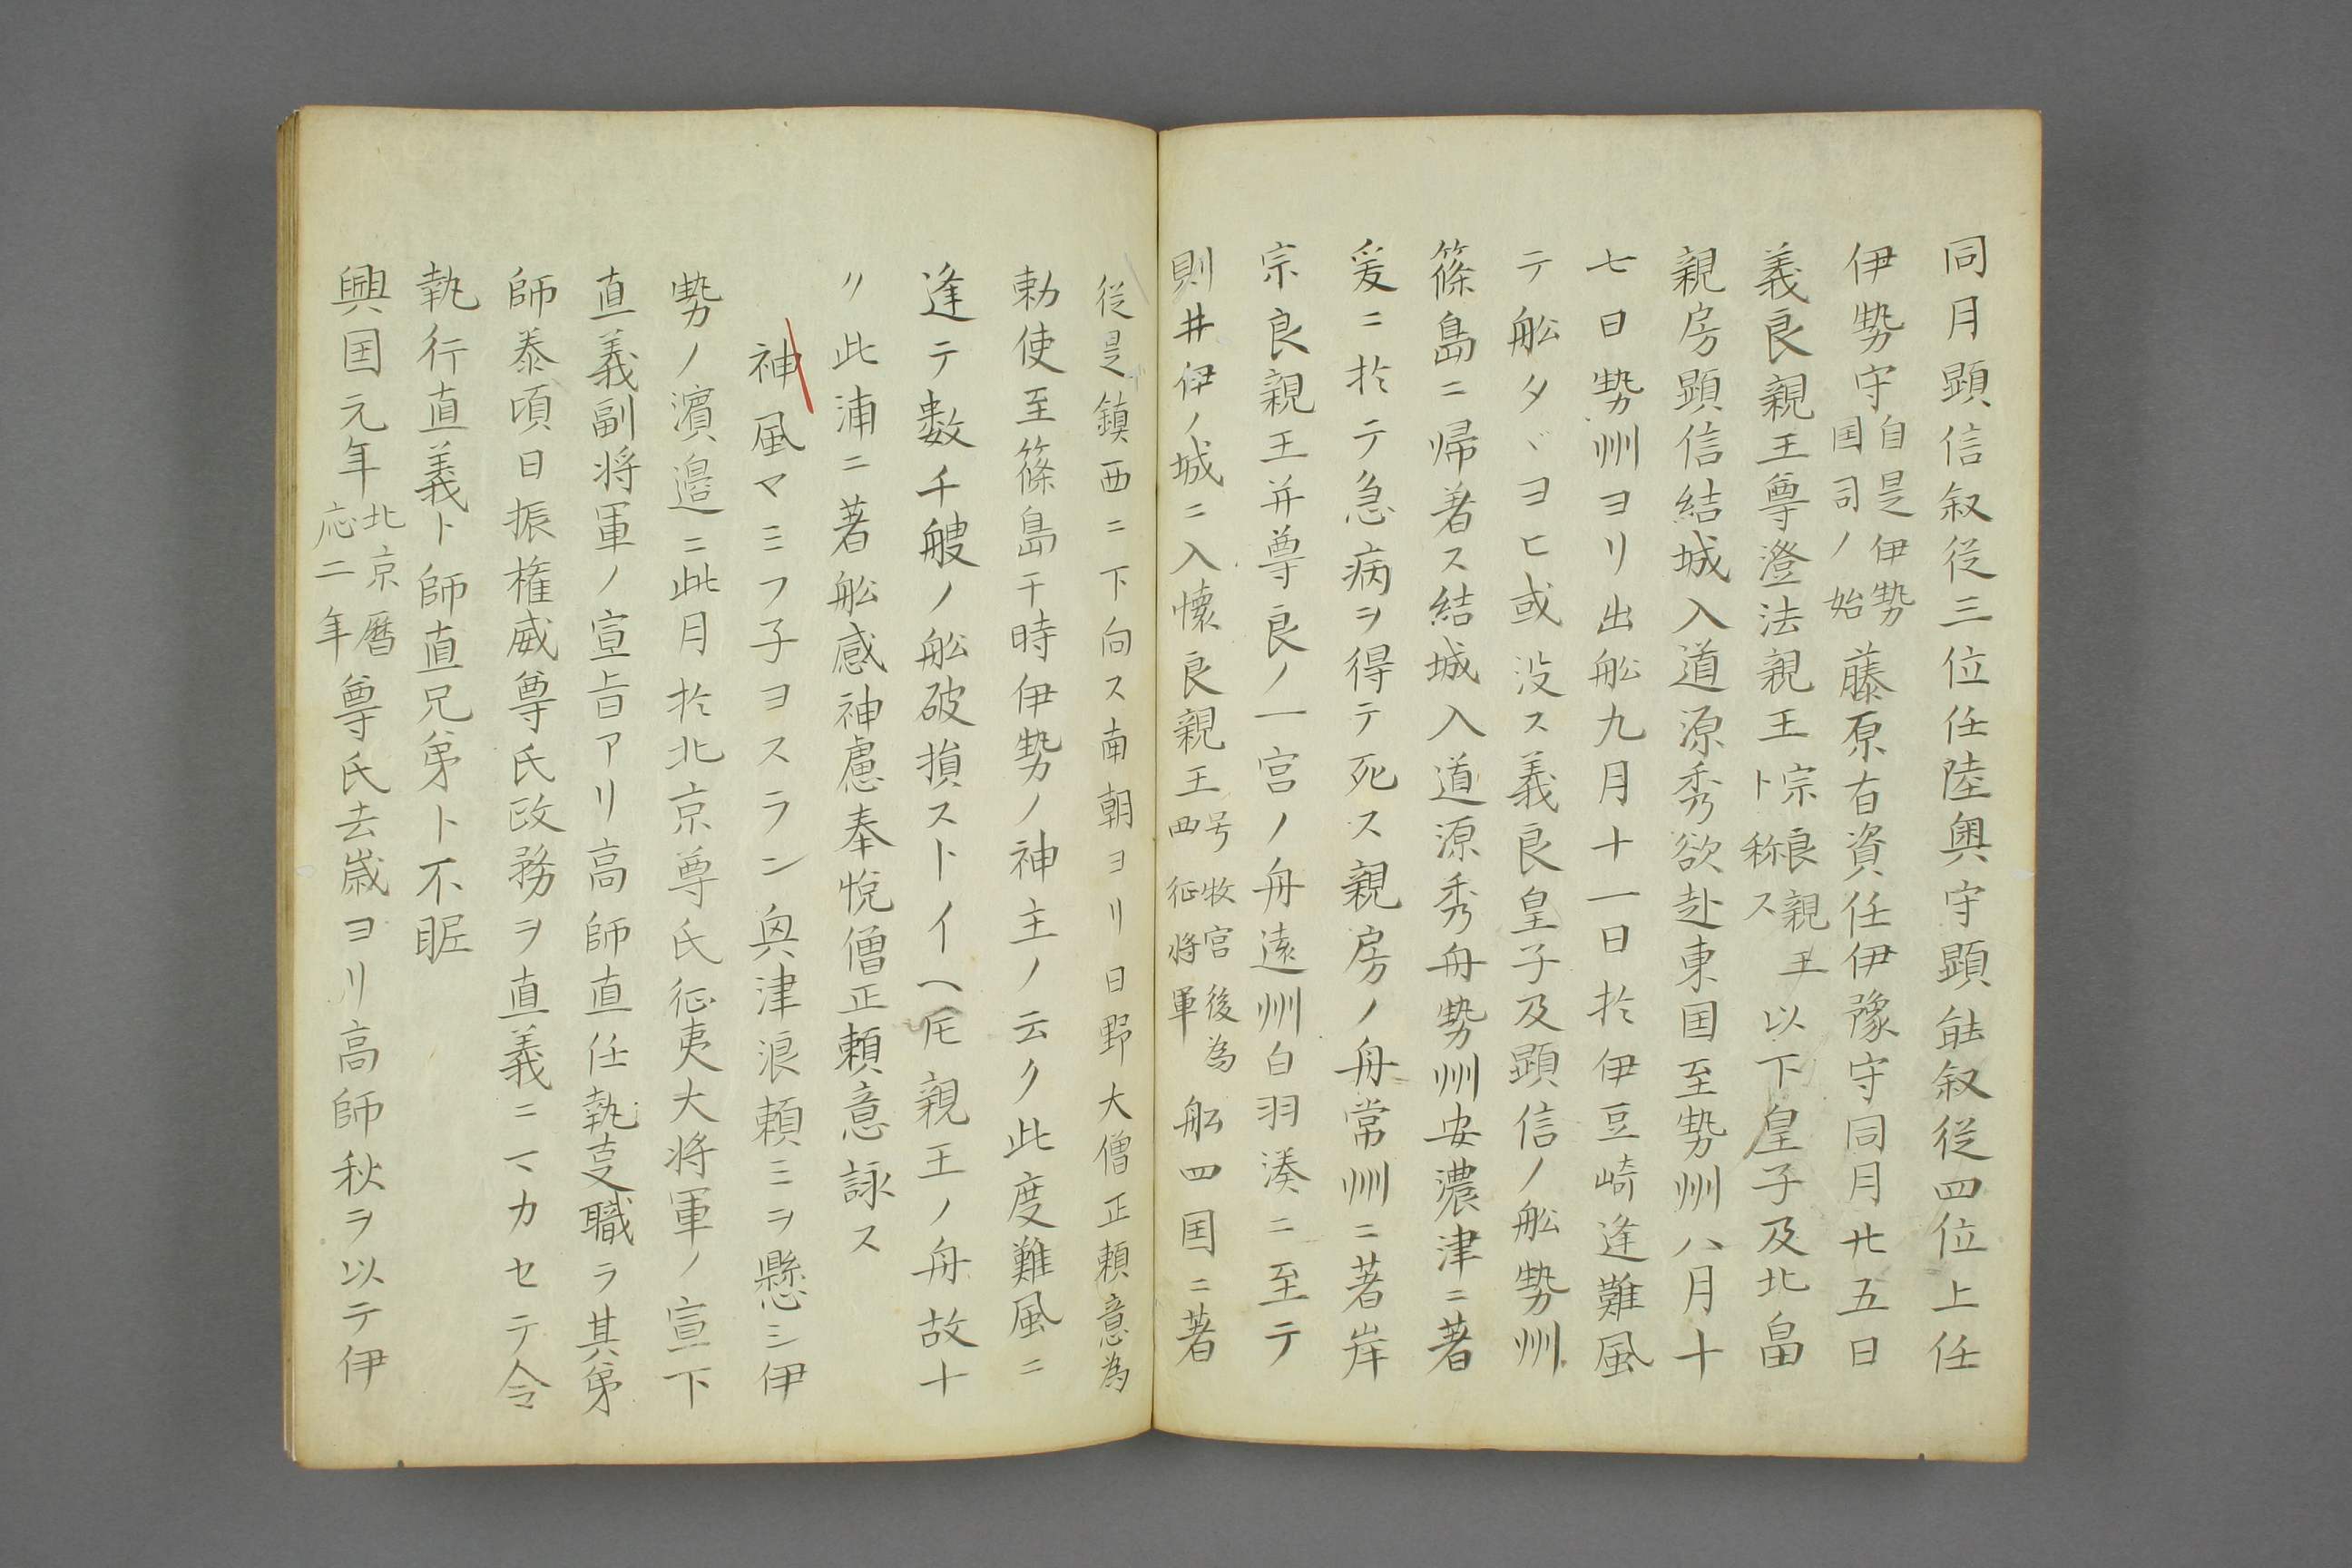 同月顕信叙従三位任陸奥守顕能叙従四位上任
伊勢守自是伊勢国司ノ始藤原有資任伊豫守同月廿五日
義良親王尊澄法親王宗良親王ト称ス以下皇子及北畠
親房顕信結城入道源秀欲赴東国至勢州八月十
七日勢州ヨリ出舩九月十一日於伊豆崎逢難風
テ舩タヾヨヒ或没ス義良皇子及顕信ノ舩勢州
篠島ニ帰著ス結城入道源秀舟勢州安濃津ニ著
爰ニ於テ急病ヲ得テ死ス親房ノ舟常州ニ著岸
宗良親王并尊良ノ一宮ノ舟遠州白羽湊ニ至テ
則井伊ノ城ニ入懐良親王号牧宮後為西征将軍舩四国ニ著
従是鎮西ニ下向ス南朝ヨリ日野大僧正頼意為
勅使至篠島干時伊勢ノ神主ノ云ク此度難風ニ
逢テ数千艘ノ舩破損ストイヘ𪜈親王ノ舟故十
リ此浦ニ著舩感神慮奉悦僧正頼意詠ス
神風マミフ子ヨスラン奥津浪頼ミヲ懸シ伊
勢ノ濱邉ニ此月於北京尊氏征夷大将軍ノ宣下
直義副将軍ノ宣旨アリ高師直任執叓職ラ其弟
師泰頃日振権威尊氏政務ヲ直義ニマカセテ令
執行直義ト師直兄弟ト不眤
興国元年北京暦応二年尊氏去歳ヨリ高師秋ヲ以テ伊